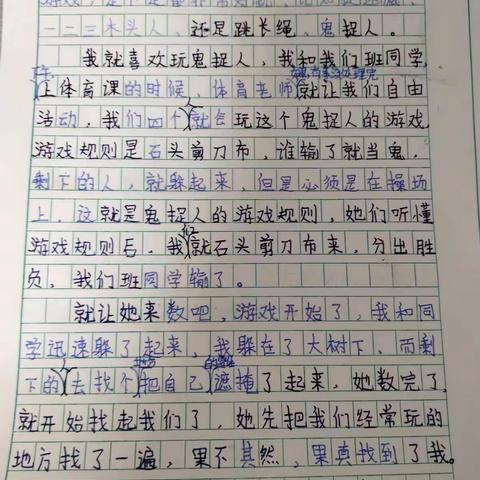 一二三木头人、还是跳长绳、鬼捉人。
我就喜欢玩鬼捉人，我和我们班同学，
上体育课的时候，体育老师就让我们自由
活动，我们四个人就会玩这个鬼捉人的游戏，
游戏规则是石头剪刀布，谁输了就当鬼，
剩下的人，就躲起来，但是必须是在操场
上，这就是鬼捉人的游戏规则，她们听懂
游戏规则后，我们就石头剪刀布来，分出胜
负，我们班同学输了。
就让她来数吧，游戏开始了，我和同
学迅速躲了起来，我躲在了大树下，而剩
下的去找个把自己遮掩了起来，她数完了，
就开始找起我们了，她先把我们经常玩的
地方找了一遍，果不其然，果真找到了我。